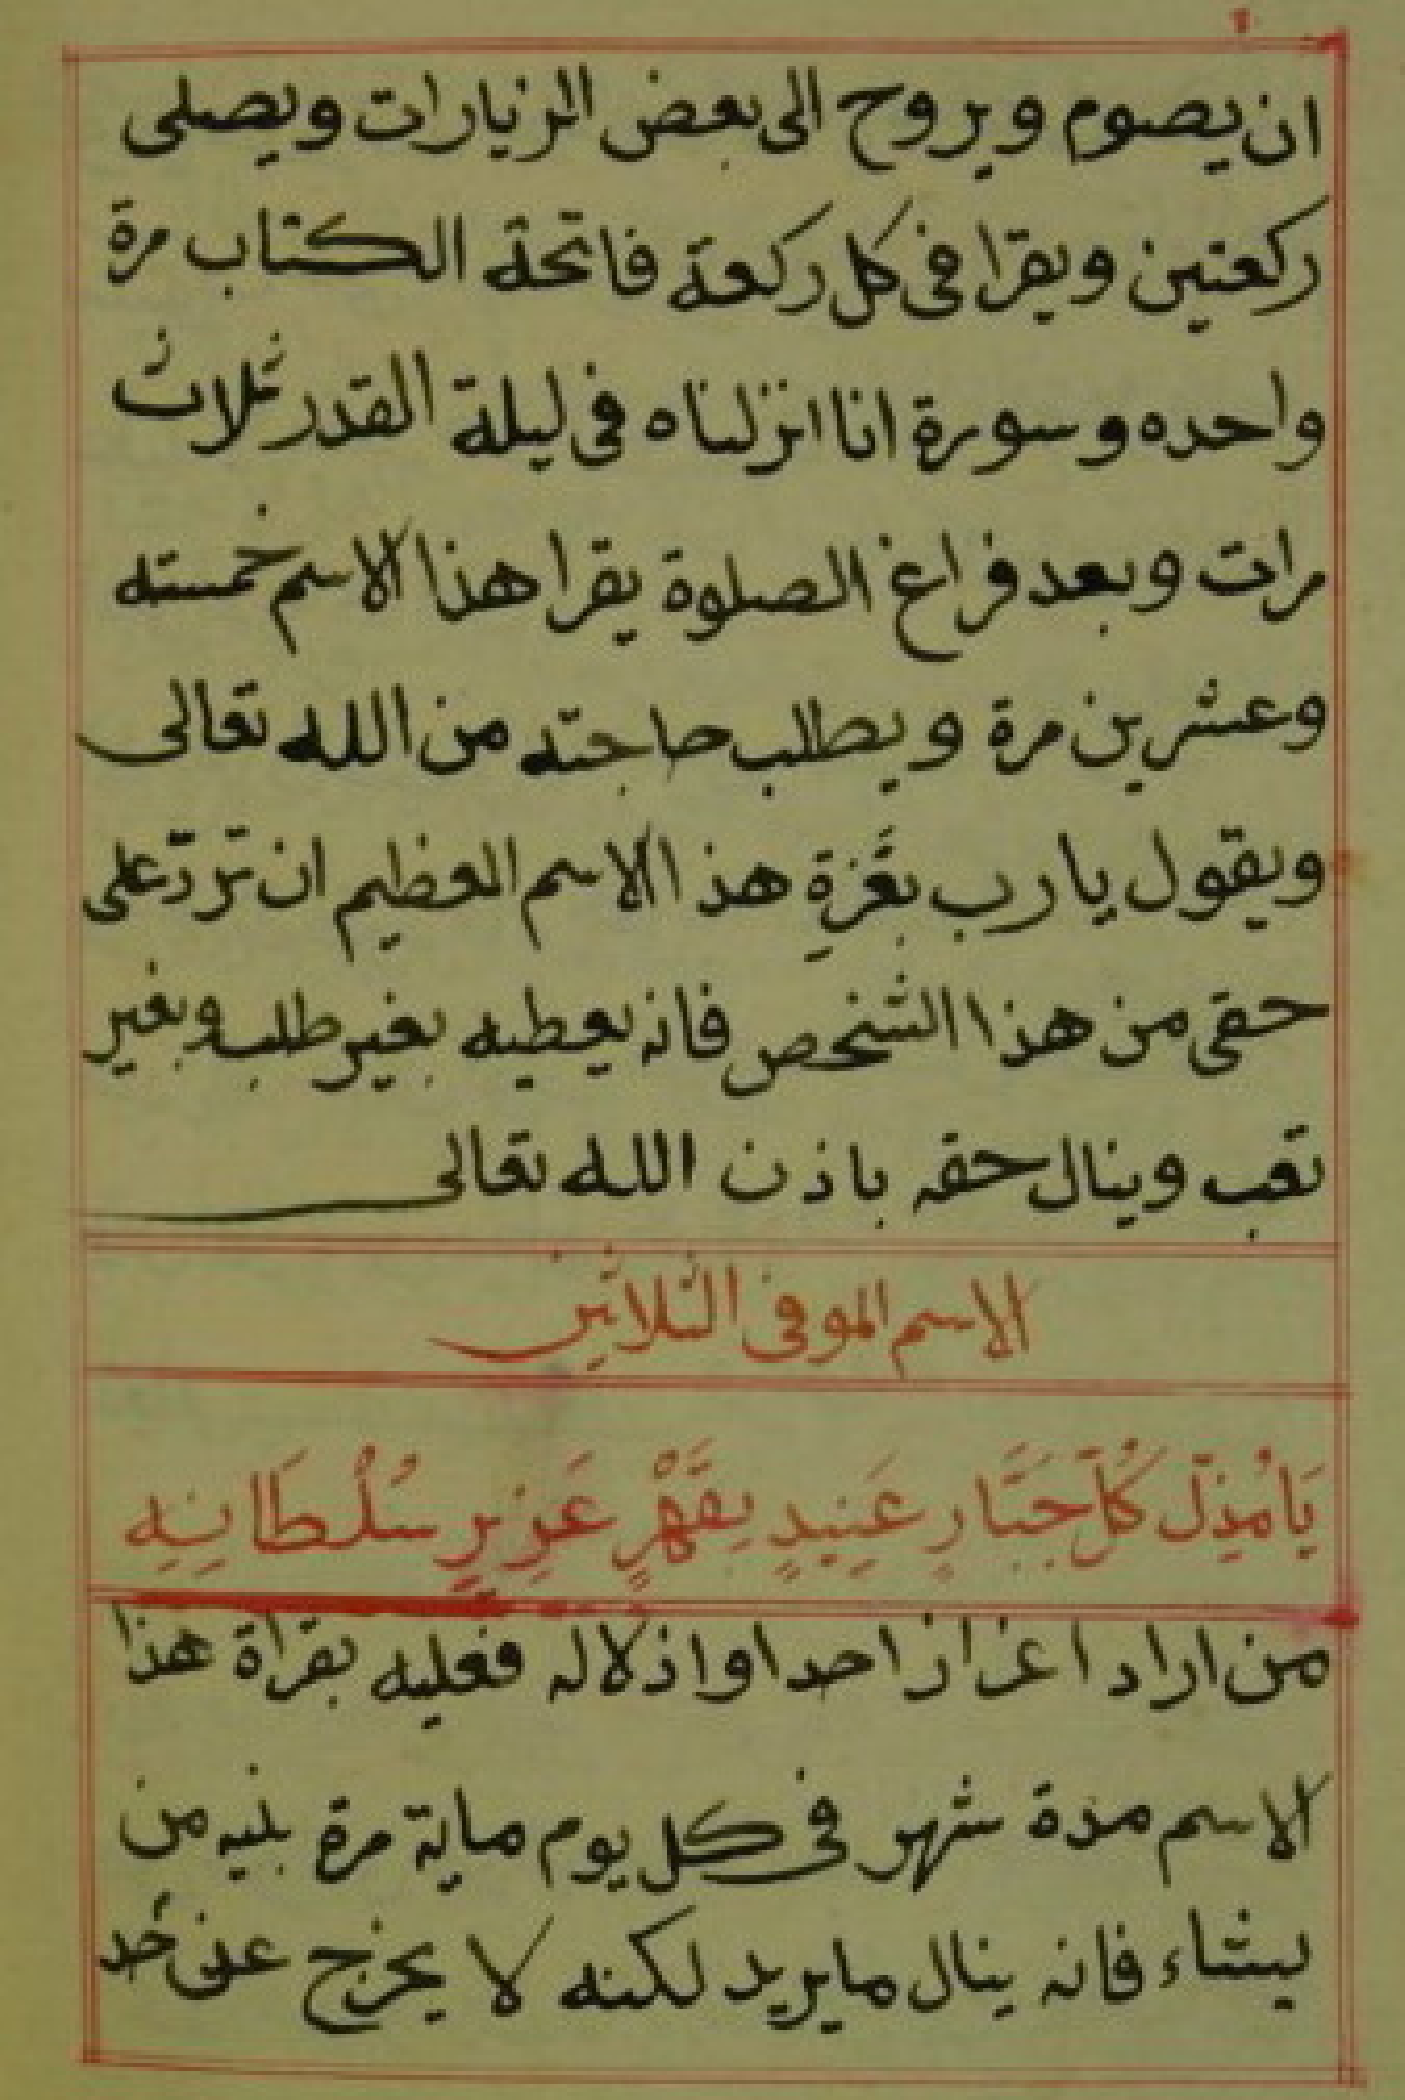 ان يصوم ويروح الى بعض الزيارات ويصلى
ركعتين ويقرا فى كل ركعة فاتحة الكتاب مرة
واحده وسورة انا انزلناه فى ليلة القدر ثلاث
مرات وبعد فراغ الصلوة يقرا هذا الاسم خمسته
وعشرين مرة ويطلب حاجته من الله تعالى
ويقول يا رب بعَزةِ هذا الاسم العظيم ان تردّ على
حقى من هذا الشخص فانه يعطيه بغير طلب وبغير
تعب وينال حقه باذن الله تعالى
الاسم الموفى الثلاثين
يَا مُذِلّ كُلّ جَبَّارٍ عَنِيدٍ بِقَهْرٍ عَزِيزٍ سُلْطَانِهِ
من اراد اعزاز احد او اذلاله فعليه بقراة هذا
الاسم مدة شهر فى كل يوم ماية مرة بنيه من
يشاء فانه ينال ما يريد لكنه لا يخرج عن حد